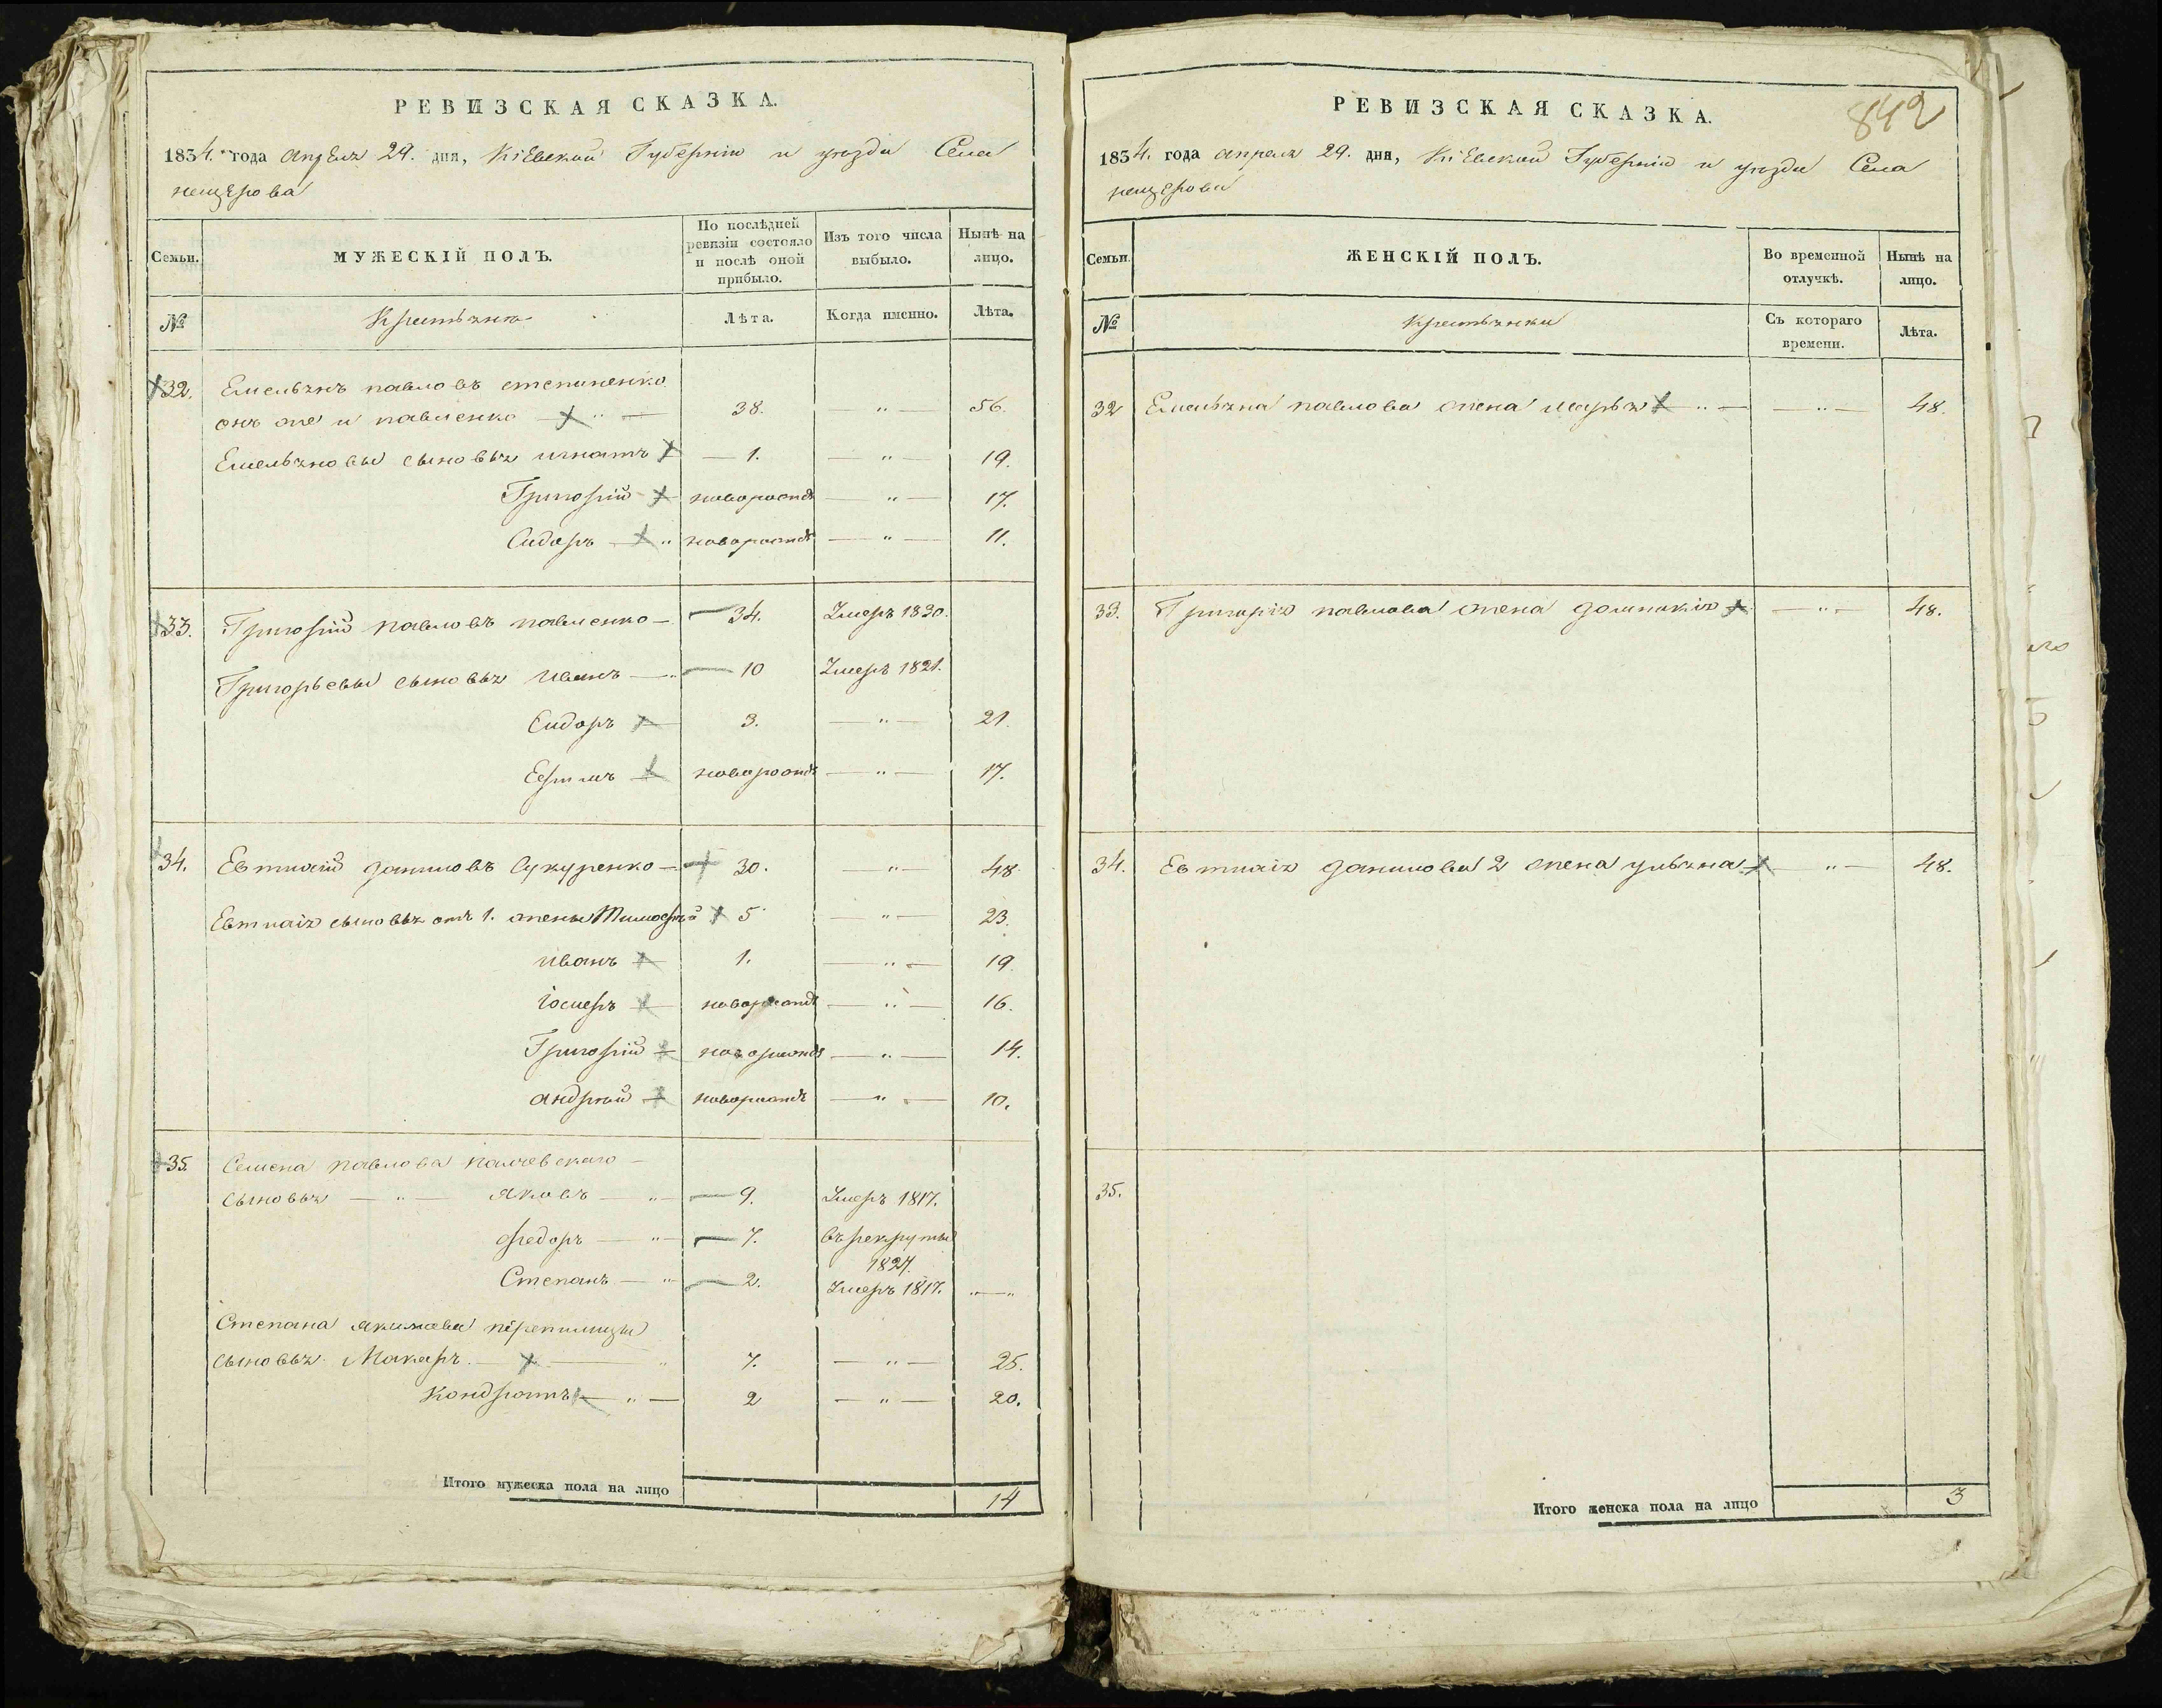 РЕВИЗСКАЯ СКАЗКА.
1834. года апреля 29. дня, Кіевской Губерніи и уезда Села
нещерова
Семьи.
МУЖЕСКІЙ ПОЛЪ.
По послѣдней ревизіи состояло и послѣ оной прибыло.
Изъ того числа выбыло.
Нынѣ на лицо.
№
Крестьяне
Лѣта.
Когда именно.
Лѣта.
32. Емельянъ павловъ степаненко
онъ же и павленко — " — 38. " — 56.
Емельяновы сыновья игнатъ — 1. — " — 19.
Григорій — новорожд — " — 17.
Сидоръ — " новорожд — " — 11.
33. Григорій павловъ павленко — 34. Умеръ 1830.
Григорьевы сыновья иванъ — " — 10 Умеръ 1821.
Сидоръ — 3. — " — 21.
Ефимъ — новорожд — " — 17.
34. Евтихій даниловъ — 30. — " — 48
сыновья отъ 1. жены Тимофей 5 — " — 23.
иванъ — 1. — " — 19.
новорожд — " — 16.
Григорій — новорожд — " — 14.
андрей — новорожд — " — 10.
35. Семена павлова
сыновья — " — яковъ — " — 9. Умеръ 1817.
федоръ — " — 7. въ рекруты
1827.
Степанъ — " — 2. Умеръ 1817. " — "
Степана якимова перепилицы
сыновья Макаръ — " 7. — " — 25.
Кондратъ — " — 2 — " — 20.
Итого мужеска пола на лицо 14
РЕВИЗСКАЯ СКАЗКА.
842
1834. года апреля 29. дня, Кіевской Губерніи и уезда Села
нещерова
Семьи.
ЖЕНСКІЙ ПОЛЪ.
Во временной отлучкѣ.
Нынѣ на лицо.
№
Крестьянки
Съ котораго времени.
Лѣта.
32 Емельяна павлова жена марья " — — " — 48.
33. Григорія павлова жена домникія — " — 48.
34. Евтихія данилова 2 жена ульяна " — 48.
35.
Итого женска пола на лицо 3